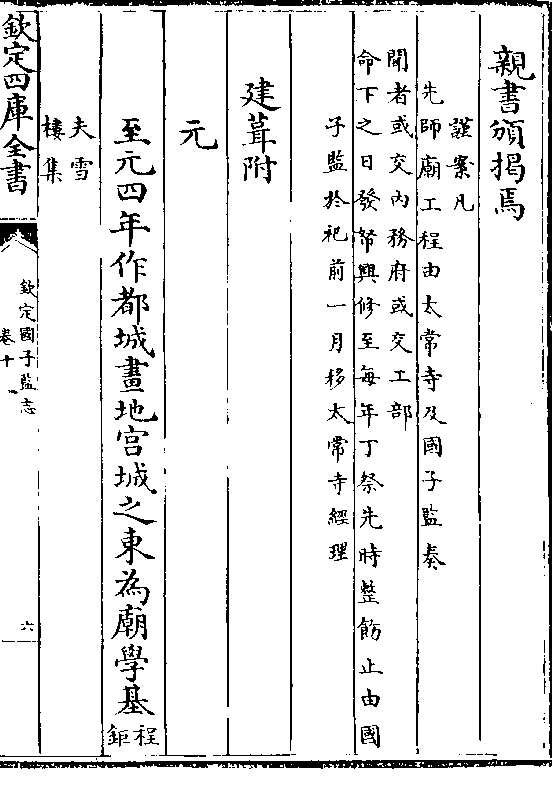 親書頒揭焉
謹案凡
先師廟工程由太常寺及國子監奏
聞者或交內務府或交工部
命下之日發帑興修至每年丁祭先時整飭止由國
子監於祀前一月移太常寺經理
建葺附
元
至元四年作都城畫地宮城之東為廟學基程鉅
夫雪樓集
欽定四庫全書
欽定國子監志
卷十
六